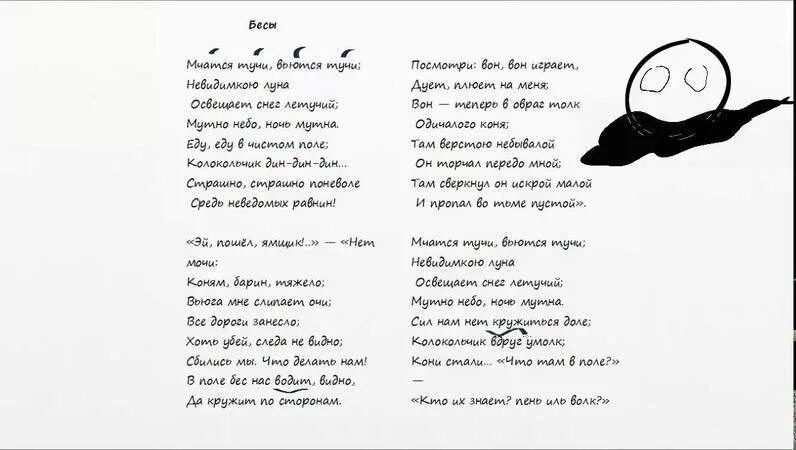 Бесы
Мчатся тучи, вьются тучи;
Невидимкою луна
Освещает снег летучий;
Мутно небо, ночь мутна.
Еду, еду в чистом поле;
Колокольчик дин-дин-дин...
Страшно, страшно поневоле
Средь неведомых равнин!
«Эй, пошёл, ямщик!..» — «Нет
мочи:
Коням, барин, тяжело;
Вьюга мне слипает очи;
Все дороги занесло;
Хоть убей, следа не видно;
Сбились мы. Что делать нам!
В поле бес нас водит, видно,
Да кружит по сторонам.
Посмотри: вон, вон играет,
Дует, плюет на меня;
Вон — теперь в овраг толк
Одичалого коня;
Там верстою небывалой
Он торчал передо мной;
Там сверкнул он искрой малой
И пропал во тьме пустой».
Мчатся тучи, вьются тучи;
Невидимкою луна
Освещает снег летучий;
Мутно небо, ночь мутна.
Сил нам нет кружиться доле;
Колокольчик вдруг умолк;
Кони стали... «Что там в поле?»
—
«Кто их знает? пень иль волк?»